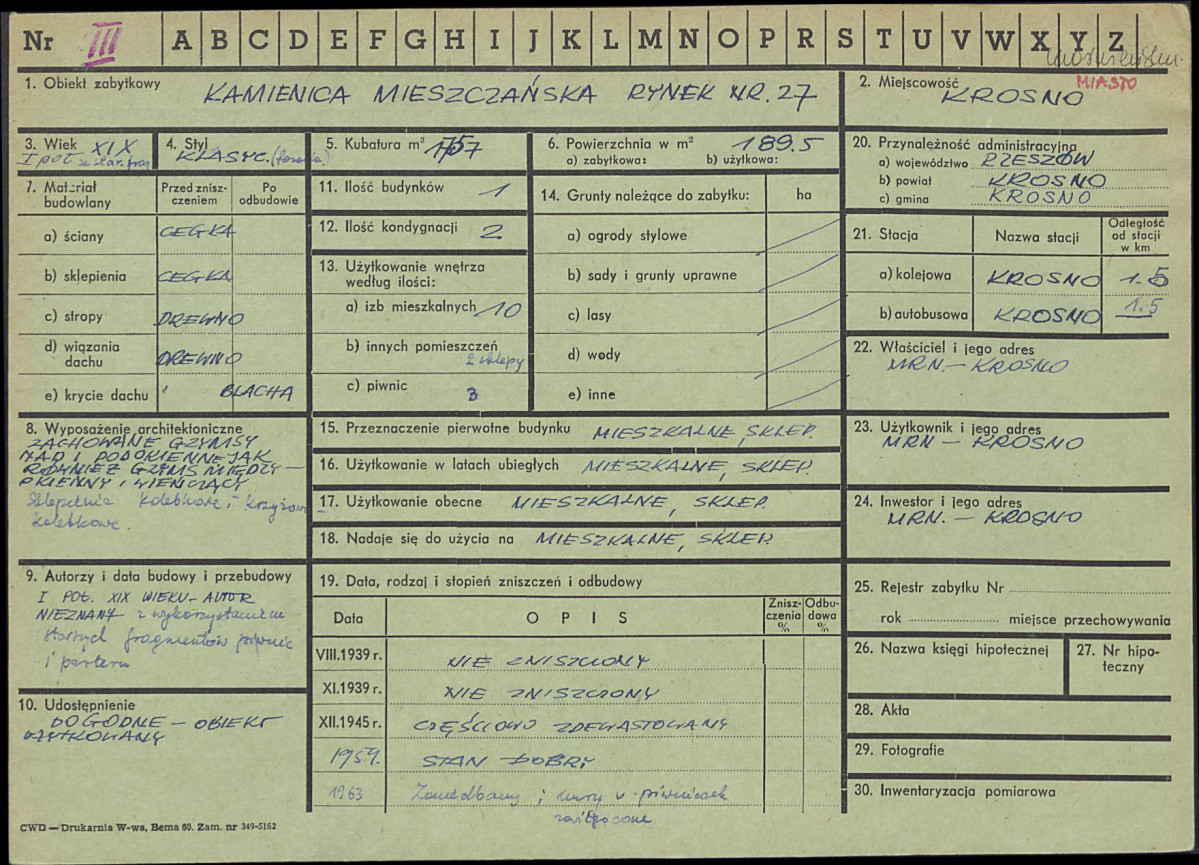 Nr III A B C D E F G H I J K L M N O P R S T U V W X Y Z
1. Obiekt zabytkowy KAMIENICA MIESZCZAŃSKA RYNEK NR. 27
2. Miejscowość MIASTO
KROSNO
3. Wiek XIX
I poł ze star. frag
4. Styl
KLASYC. (fasada)
5. Kubatura m³
6. Powierzchnia w m² 189.5
a) zabytkowa: b) użytkowa:
7. Materiał budowlany
Przed zniszczeniem
Po odbudowie
a) ściany CEGŁA
b) sklepienia CEGŁA
c) stropy DREWNO
d) wiązania dachu DREWNO
e) krycie dachu BLACHA
8. Wyposażenie architektoniczne
ZACHOWANE GZYMSY
NAD I PODOKIENNE JAK
RÓWNIEŻ GZYMS MIĘDZY-
OKIENNY I WIEŃCZĄCY
Sklepienia kolebkowe i krzyżowo-
kolebkowe.
9. Autorzy i data budowy i przebudowy
I POŁ. XIX WIEKU - AUTOR
NIEZNANY z wykorzystaniem
starych fragmentów piwnic
i parteru
10. Udostępnienie
DOGODNE - OBIEKT
UŻYTKOWANY
11. Ilość budynków 1
12. Ilość kondygnacji 2
13. Użytkowanie wnętrza
według ilości:
a) izb mieszkalnych 10
b) innych pomieszczeń
2 sklepy
c) piwnic 3
14. Grunty należące do zabytku: ha
a) ogrody stylowe
b) sady i grunty uprawne
c) lasy
d) wody
e) inne
15. Przeznaczenie pierwotne budynku MIESZKALNE, SKLEP.
16. Użytkowanie w latach ubiegłych MIESZKALNE, SKLEP.
17. Użytkowanie obecne MIESZKALNE, SKLEP.
18. Nadaje się do użycia na MIESZKALNE, SKLEP.
19. Data, rodzaj i stopień zniszczeń i odbudowy
Data OPIS Zniszczenia % Odbudowa %
VIII.1939 r. NIE ZNISZCZONY
XI.1939 r. NIE ZNISZCZONY
XII.1945 r. CZĘŚCIOWO ZDEWASTOWANY
1959. STAN DOBRY
1963 Zaniedbany i mury w piwnicach
zawilgocone
20. Przynależność administracyjna
a) województwo RZESZÓW
b) powiat KROSNO
c) gmina KROSNO
21. Stacja Nazwa stacji Odległość od stacji w km
a) kolejowa KROSNO 1.5
b) autobusowa KROSNO 1.5
22. Właściciel i jego adres
MRN. - KROSNO
23. Użytkownik i jego adres
MRN - KROSNO
24. Inwestor i jego adres
MRN. - KROSNO
25. Rejestr zabytku Nr
rok miejsce przechowywania
26. Nazwa księgi hipotecznej
27. Nr hipoteczny
28. Akta
29. Fotografie
30. Inwentaryzacja pomiarowa
CWD — Drukarnia W-wa, Bema 60. Zam. nr 349-5162